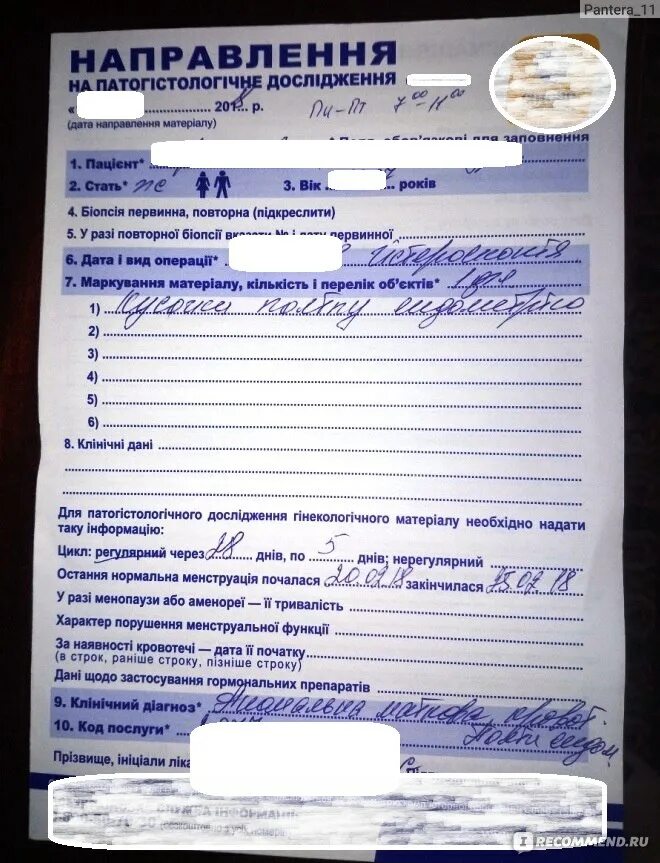 Pantera_11
НАПРАВЛЕННЯ
НА ПАТОГІСТОЛОГІЧНЕ ДОСЛІДЖЕННЯ
« 2018 р. Пн-Пт 7 00 - 11 00
(дата направлення матеріалу)
для заповнення
1. Пацієнт*
2. Стать* ж 3. Вік років
4. Біопсія первинна, повторна (підкреслити)
5. У разі повторної біопсії вказати № і дату первинної
6. Дата і вид операції* гістероскопія
7. Маркування матеріалу, кількість і перелік об'єктів*
1) Кусочки поліпу ендометрію
2)
3)
4)
5)
6)
8. Клінічні дані
Для патогістологічного дослідження гінекологічного матеріалу необхідно надати
таку інформацію:
Цикл: регулярний через 28 днів, по 5 днів; нерегулярний
Остання нормальна менструація почалася 20.02.18 закінчилася 25.02.18
У разі менопаузи або аменореї — її тривалість
Характер порушення менструальної функції
За наявності кровотечі — дата її початку
(в строк, раніше строку, пізніше строку)
Дані щодо застосування гормональних препаратів
9. Клінічний діагноз* Аномальна маткова кровот.
10. Код послуги* Поліп ендом
Прізвище, ініціали
IRECOMMEND.RU